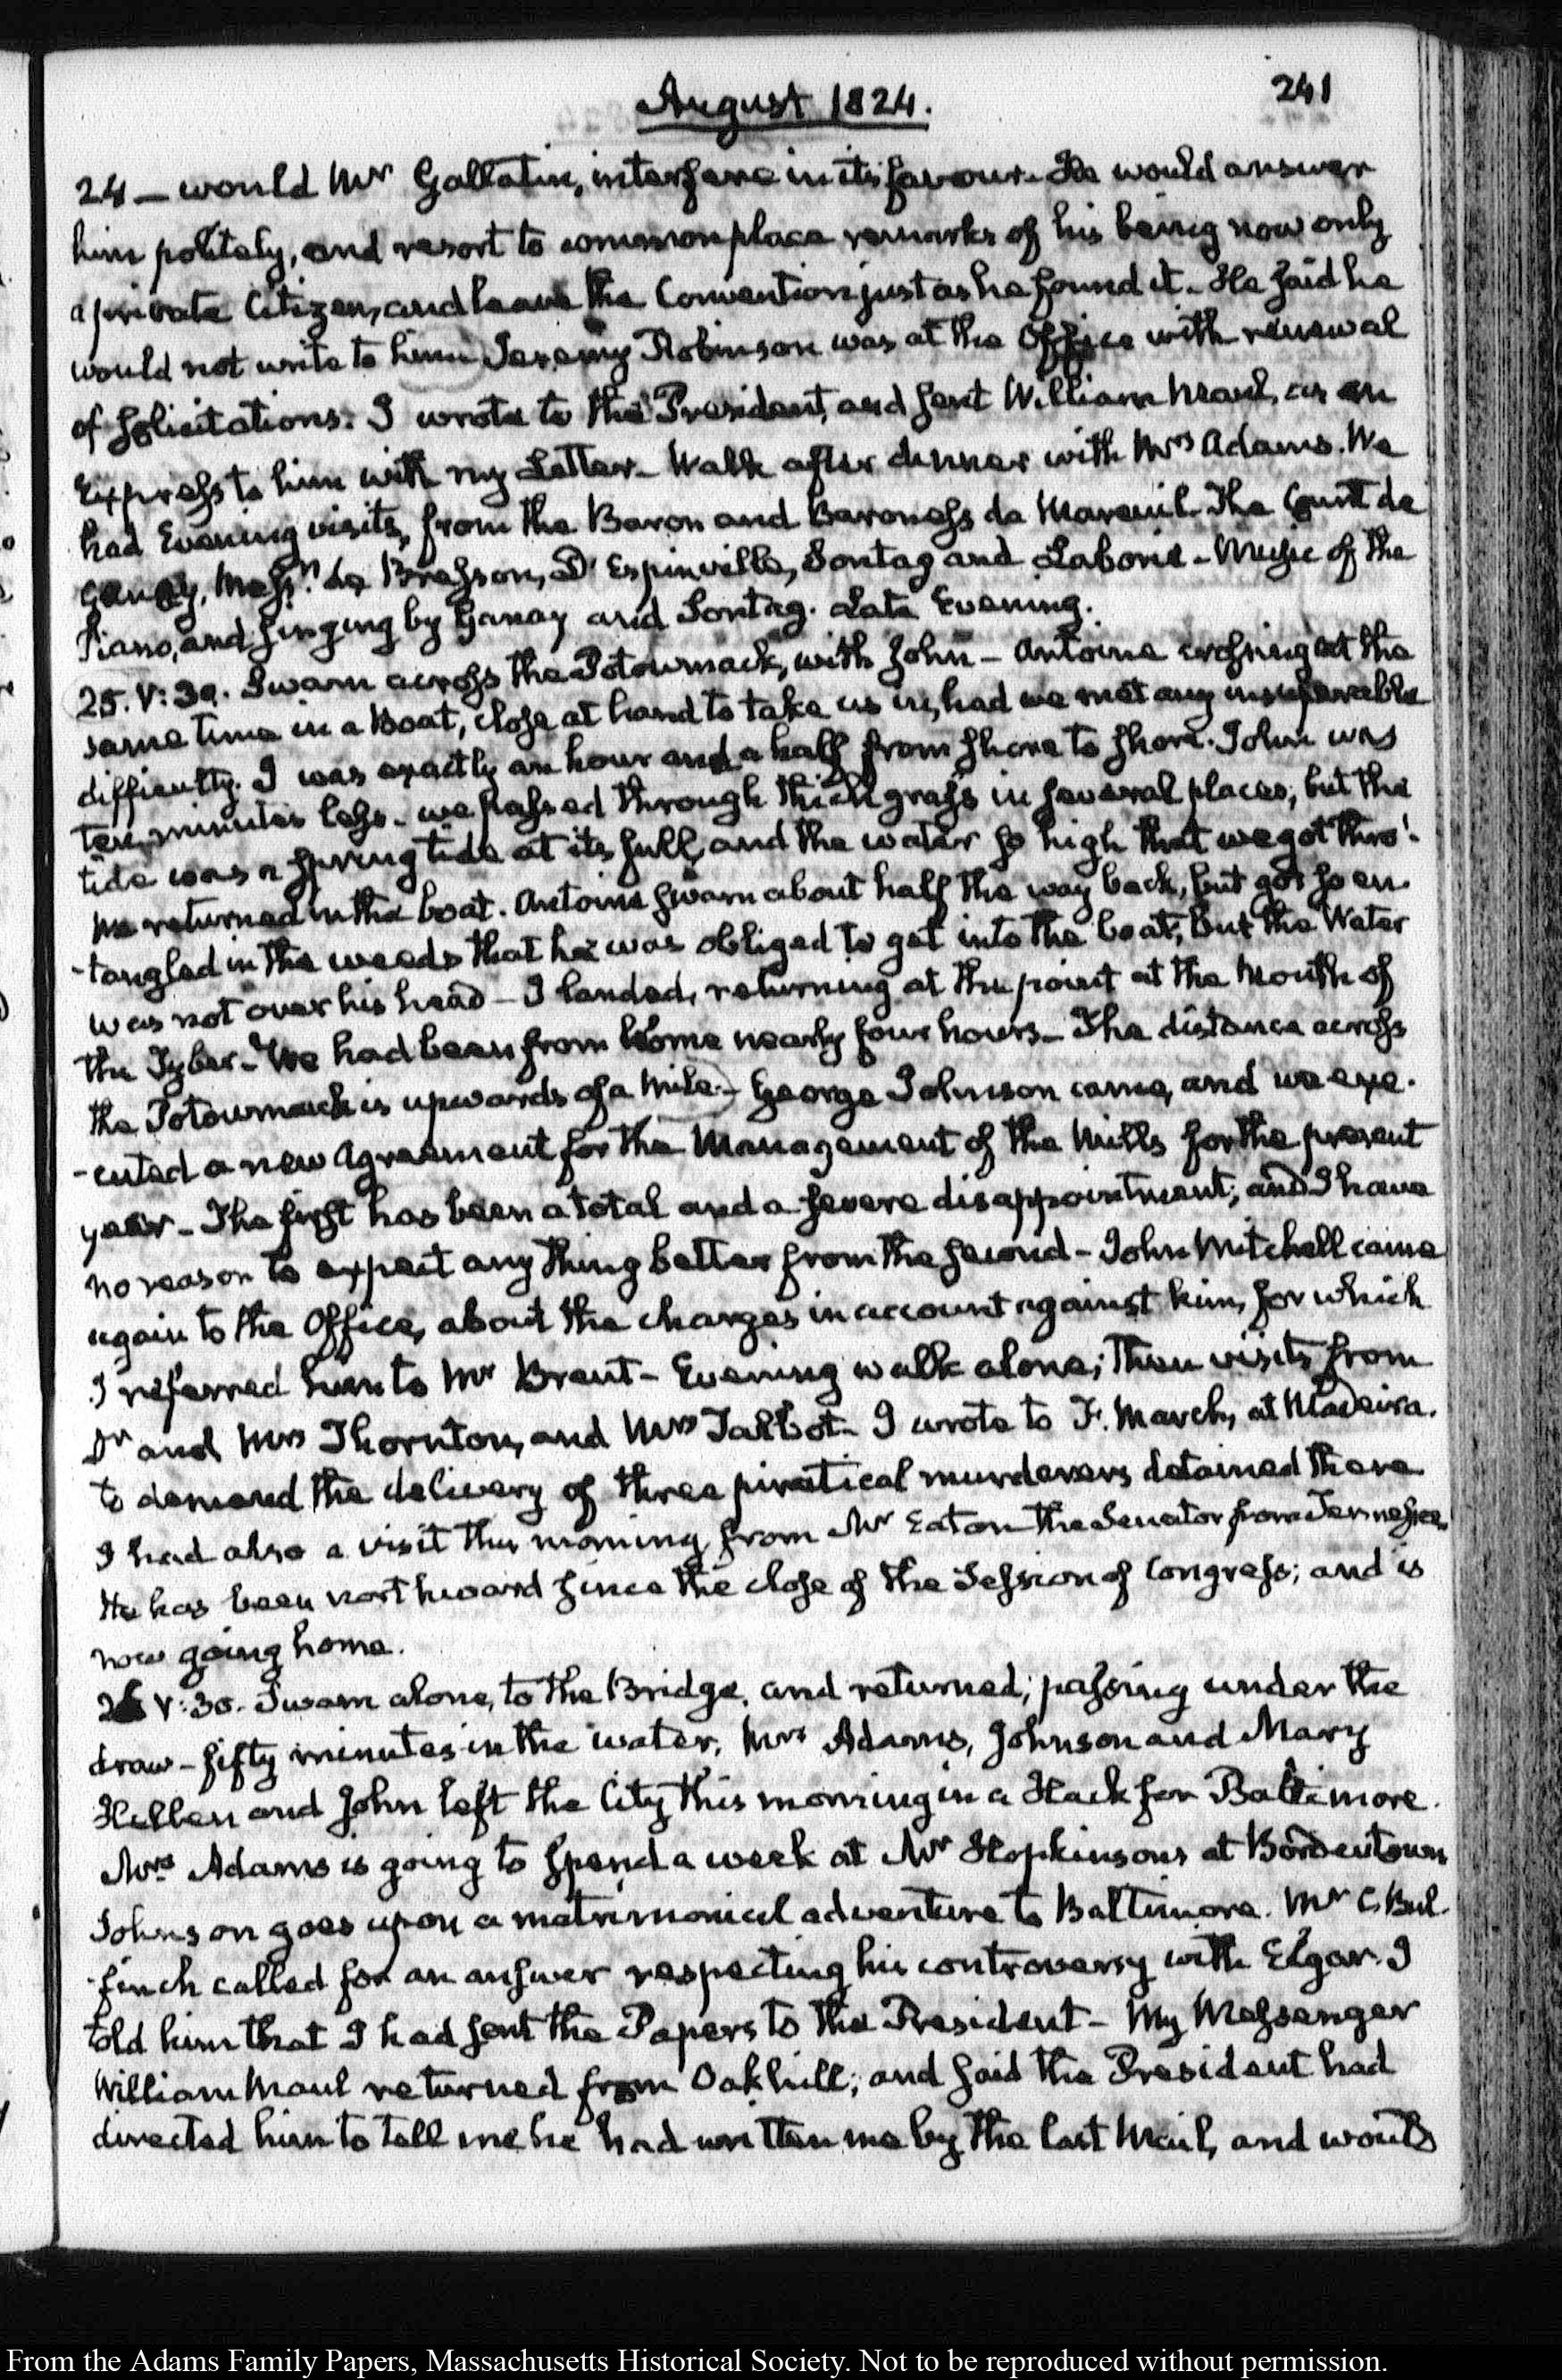 August 1824.
241
24 — would Mr Gallatin, interfere in its favour. He would answer
him politely, and resort to commonplace remarks of his being now only
a private Citizen, and leave the Convention just as he found it. He said he
would not write to him Jeremy Robinson was at the Office with renewal
of solicitations. I wrote to the President, and sent William Maul, as an
Express to him with my Letter. Walk after dinner with Mrs Adams. We
had Evening visits, from the Baron and Baroness de Mareuil. The Count de
Ganay, Messrs de Bresson, D'Espinville, Sontag and Laborie - Music of the
Piano, and singing by Ganay and Sontag. Late Evening.
25. V:30. Swam across the Potowmack, with John - Antoine crossing at the
same time in a Boat, close at hand to take us in, had we met any insuperable
difficulty. I was exactly an hour and a half from shore to shore. John was
ten minutes less. we passed through thick grass in several places, but the
tide was a spring tide at its full, and the water so high that we got thro'.
We returned in the boat. Antoine swam about half the way back, but got so en-
-tangled in the weeds that he was obliged to get into the boat, but the Water
was not over his head - I landed, returning at the point at the Mouth of
the Tyber - We had been from home nearly four hours - The distance across
the Potowmack is upwards of a Mile - George Johnson came, and we exe-
-cuted a new Agreement for the Management of the Mills for the present
year - The first has been a total and a severe disappointment; and I have
no reason to expect any thing better from the second - John Mitchell came
again to the Office, about the charges in account against him, for which
I referred him to Mr Brent - Evening walk alone; Then visits from
Dr and Mrs Thornton, and Mrs Talbot. I wrote to F. March, at Madeira.
to demand the delivery of three piratical murderers detained there
I had also a visit this morning from Mr Eaton the Senator from Tennessee.
He has been northward since the close of the Session of Congress; and is
now going home.
26 V:30. Swam alone, to the Bridge, and returned; passing under the
draw - fifty minutes in the water. Mrs Adams, Johnson and Mary
Hellen and John left the City this morning in a Hack for Baltimore.
Mrs Adams is going to spend a week at Mr Hopkinsons at Bordentown
Johnson goes upon a matrimonial adventure to Baltimore. Mr C. Bul-
-finch called for an answer respecting his controversy with Elgar. I
told him that I had sent the Papers to the President - My Messenger
William Maul returned from Oakhill; and said the President had
directed him to tell me he had written me by the last Mail, and would
From the Adams Family Papers, Massachusetts Historical Society. Not to be reproduced without permission.